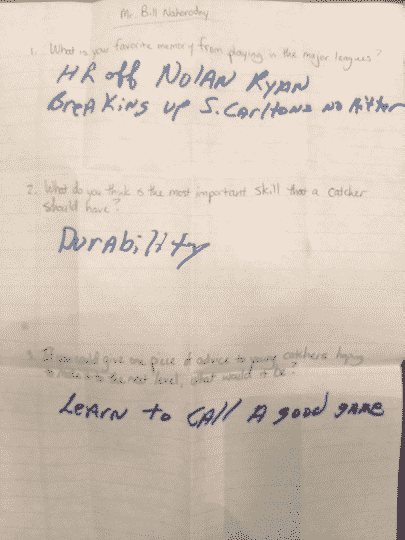 Mr. Bill Nahorodny
1. What is your favorite memory from playing in the major leagues?
HR off NOLAN RYAN
BreaKing up S. CarltonS NO Hitter
2. What do you think is the most important skill that a catcher
should have?
Durability
3. If you could give one piece of advice to young catchers trying
to make it to the next level, what would it be?
LEARN to CAll A good gAME